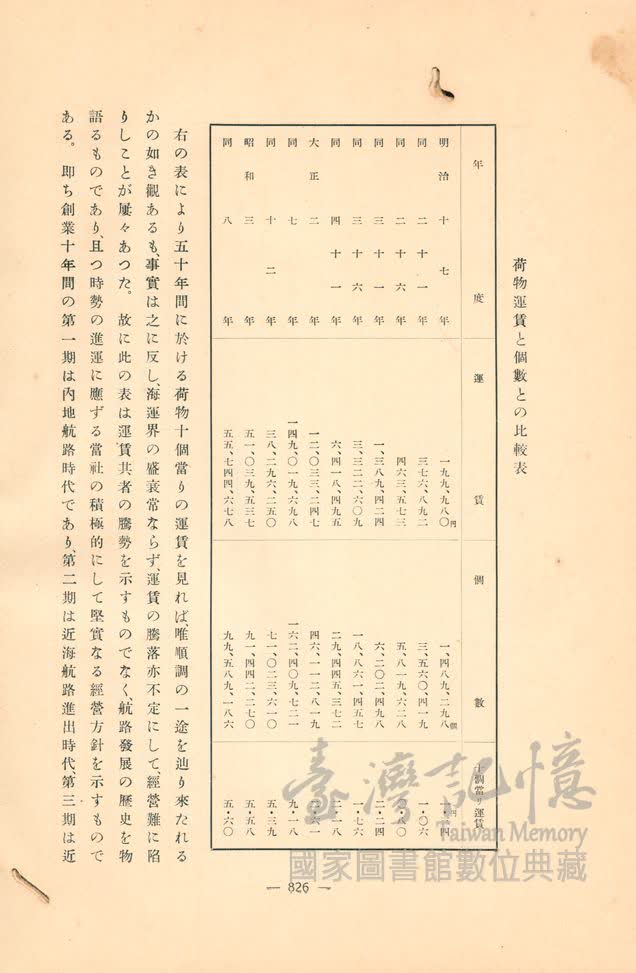 荷物運賃と個數との比較表
年度 運賃 個數 十個當り運賃
明治十七年 一九九、九八〇円 一、四八九、二九八個 一・三四円
同二十一年 三七六、八九二 三、五六〇、四一九 一・〇六
同二十六年 四六三、五七三 五、八一九、六二八 〇・八〇
同三十一年 一、三八九、四二四 六、二〇二、四九八 二・二四
同三十六年 三、三二二、六〇九 一八、八六一、四五七 一・七六
同四十一年 六、四一八、四九五 二九、四四五、三七二 二・一八
大正二年 一二、〇三三、二四七 四六、一一二、八一九 二・六一
同七年 一四九、〇一九、六九八 一六二、四〇九、七二一 九・一八
同十二年 三八、二九六、二五〇 七一、〇二三、六一〇 五・三九
昭和三年 五一、〇三九、五三七 九一、四四二、二七〇 五・五八
同八年 五五、七四四、六七八 九九、五八九、一八六 五・六〇
右の表により五十年間に於ける荷物十個當りの運賃を見れば、唯順調の一途を辿り來たれる
かの如き觀あるも、事實は之に反し、海運界の盛衰常ならず、運賃の騰落亦不定にして、經營難に陷
りしことが屢々あつた。故に此の表は運賃其者の騰勢を示すものでなく、航路發展の歷史を物
語るものであり、且つ時勢の進運に應ずる當社の積極的にして堅實なる經營方針を示すもので
ある。卽ち創業十年間の第一期は內地航路時代であり、第二期は近海航路進出時代、第三期は近
— 826 —
臺灣記憶
Taiwan Memory
國家圖書館數位典藏